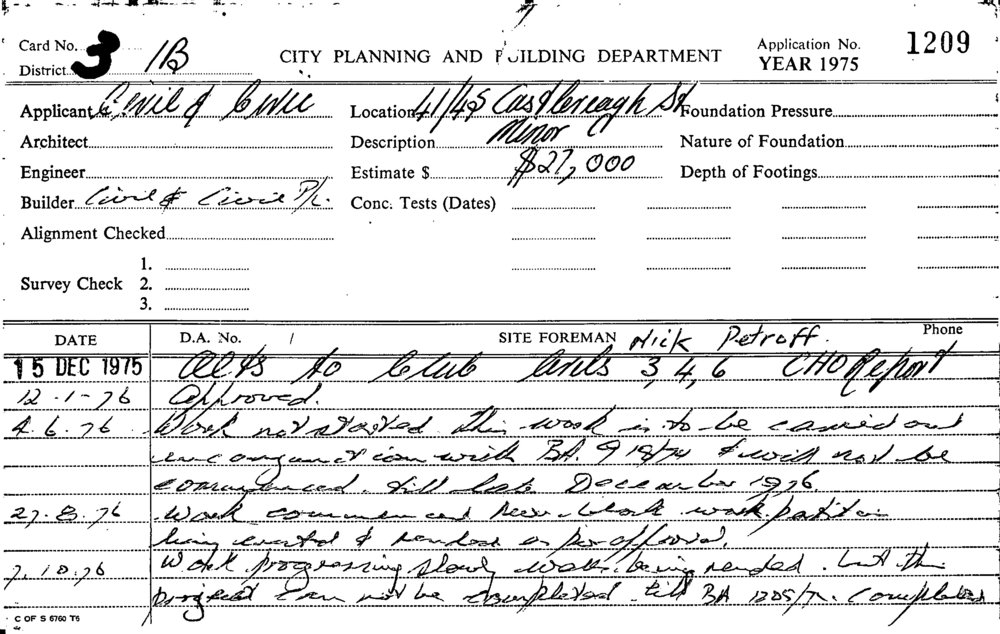 Card No. 3 1B CITY PLANNING AND BUILDING DEPARTMENT Application No. 1209
District YEAR 1975
Applicant Civil & Civic Location 41/45 Castlereagh St Foundation Pressure
Architect Description Minor Nature of Foundation
Engineer Estimate $ $27,000 Depth of Footings
Builder Civil & Civic P/L. Conc. Tests (Dates)
Alignment Checked
1.
Survey Check 2.
3.
DATE D.A. No. / SITE FOREMAN Nick Petroff. Phone
15 DEC 1975 Alts to Club 3, 4, 6 CHO Report
12-1-76 Approved.
4.6.76 Work not started this work is to be carried out
with BA. 918/74 & will not be
commenced till late December 1976.
27.8.76 Work commenced new block work
being erected & as per approval.
7.10.76 Work progressing slowly walls being rended. but this
project can not be completed till BA completed
C OF S 6760 T6